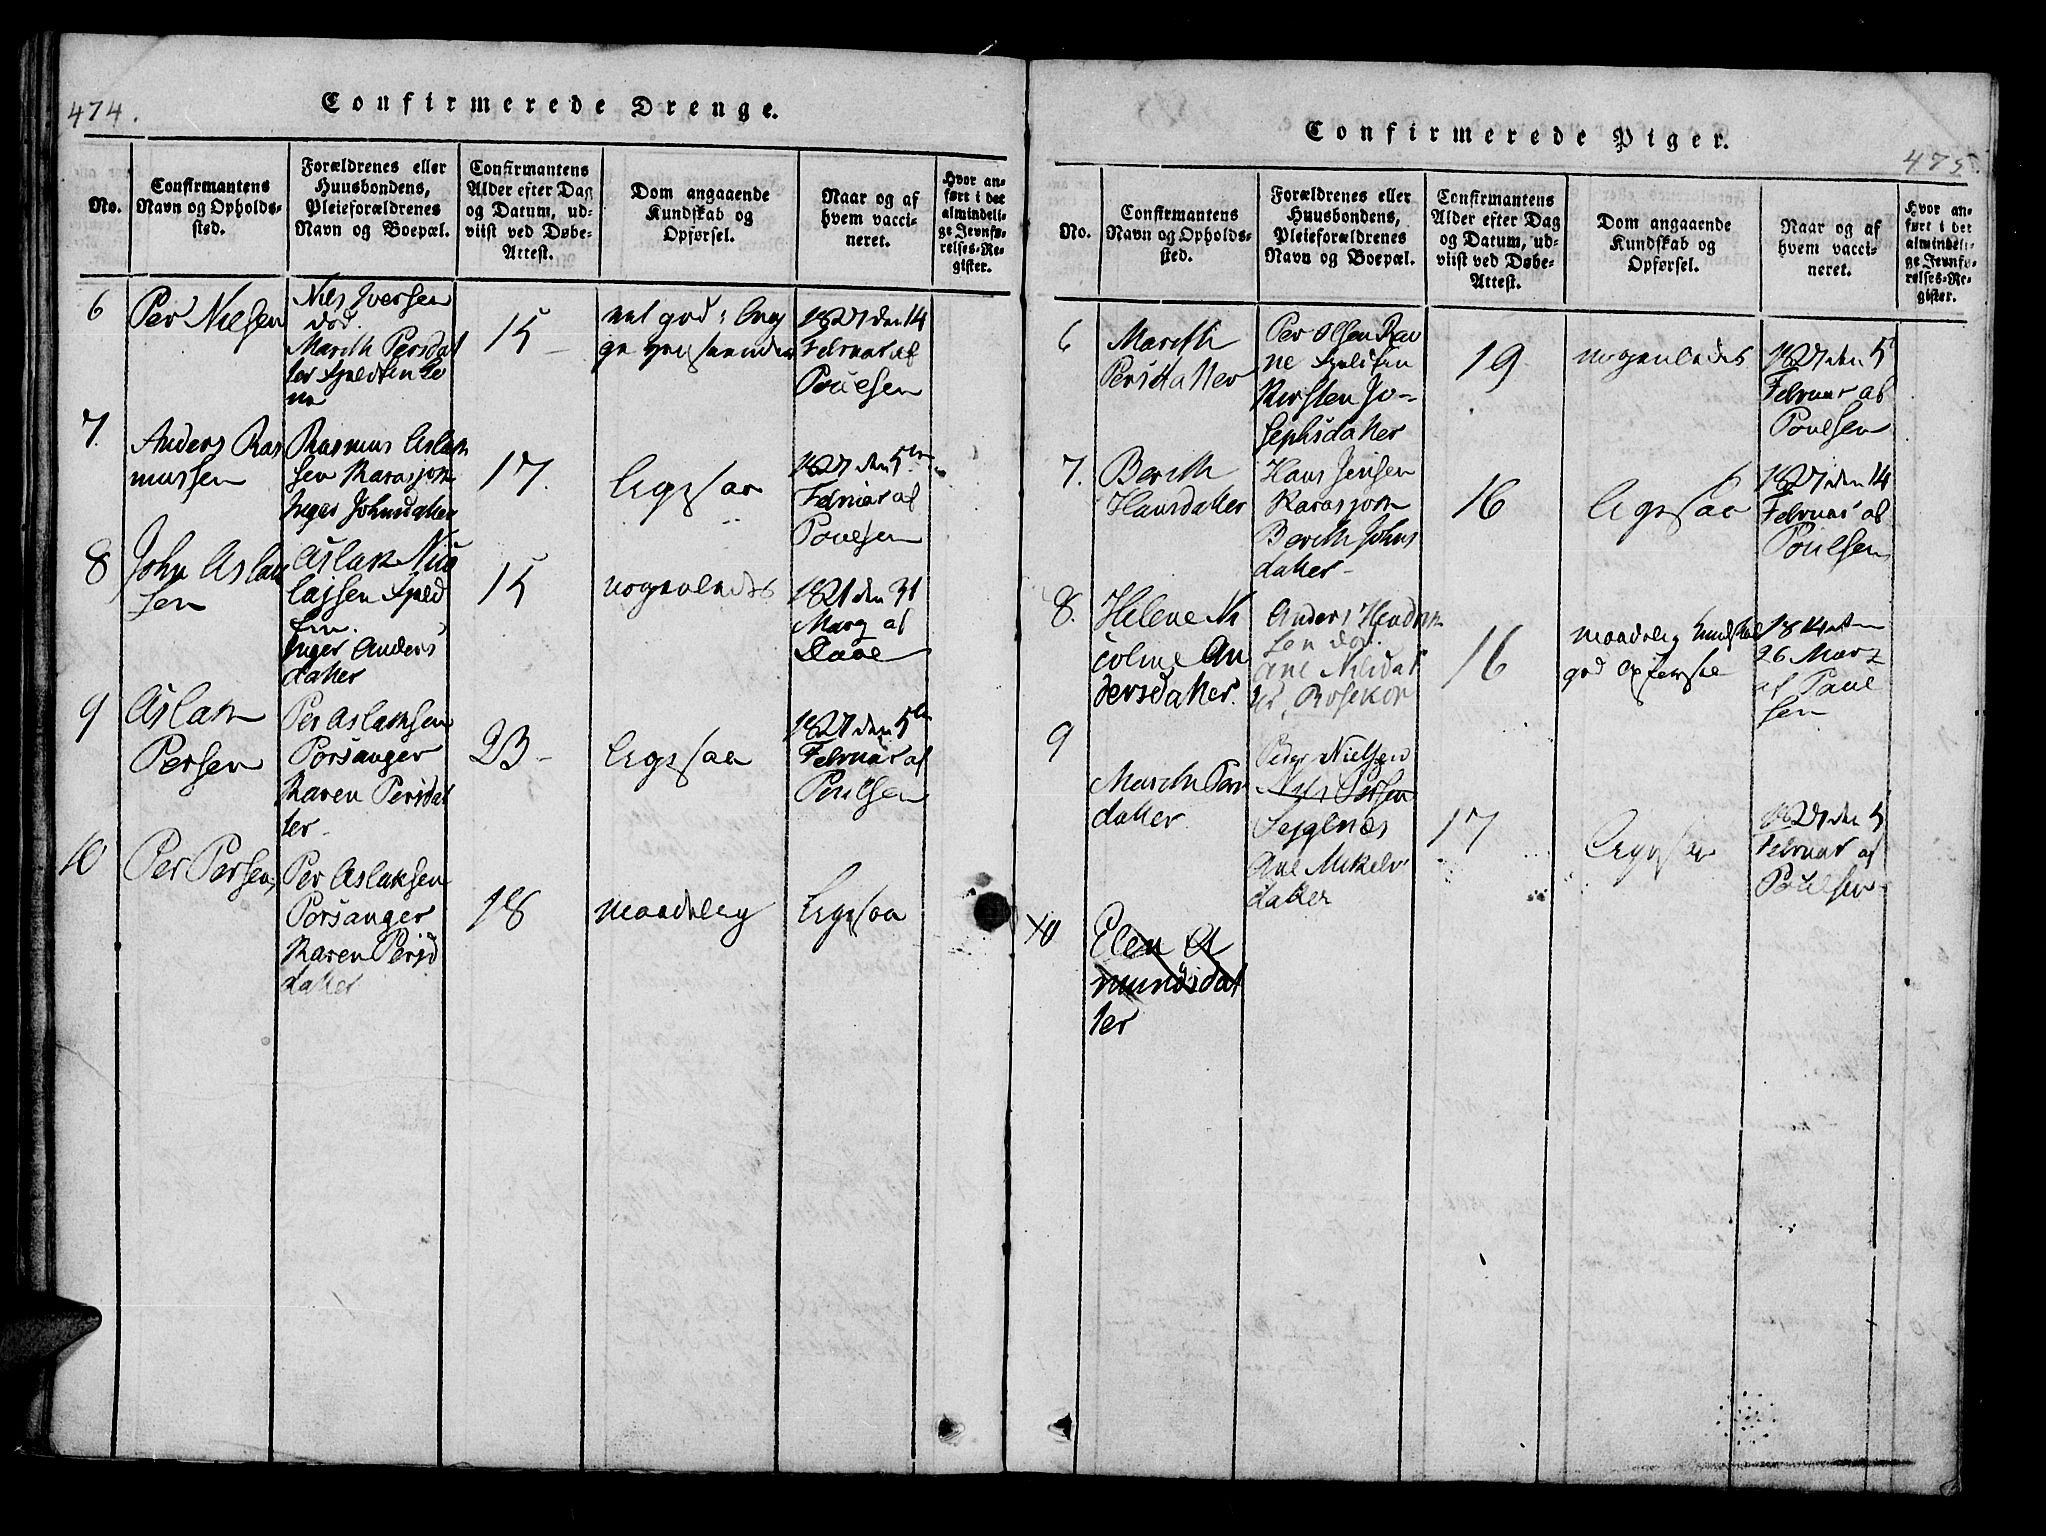 474.
Confirmerede Drenge.
No.
Confirmantens
Navn og Opholds-
sted.
Forældrenes eller
Huusbondens,
Pleieforældrenes
Navn og Boepæl.
Confirmantens
Alder efter Dag
og Datum, ud-
viist ved Døbe-
Attest.
Dom angaaende
Kundskab og
Opførsel.
Naar og af
hvem vacci-
neret.
Hvor an-
ført i det
almindeli-
ge Jevnfø-
relses-Re-
gister.
6
Per Nielsen
Niels Iversen
død.
Marith Persdat
ter
15
1821 den 14
Februar af
Poulsen
7.
Anders Ras
mussen
Rasmus Aslak
sen Karasjok
Inger Johnsdatter
17.
Ligesaa
1821 den 5te
Februar af
Poulsen
8
John Aslak
sen
Aslak Nico
laisen Fjeld
fin.
Inger Anders
datter
15
nogenledes
1821 den 31
Marz af
9
Aslak
Persen
Per Aslaksen
Porsanger
Karen Persdat
ter
23
Ligesaa
1821 den 5te
Februar af
Poulsen
10
Per Persen
Per Aslaksen
Porsanger
Karen Persd
datter
18
maadelig
Ligesaa
Confirmerede Piger.
475.
No.
Confirmantens
Navn og Opholds-
sted.
Forældrenes eller
Huusbondens,
Pleieforældrenes
Navn og Boepæl.
Confirmantens
Alder efter Dag
og Datum, ud-
viist ved Døbe-
Attest.
Dom angaaende
Kundskab og
Opførsel.
Naar og af
hvem vacci-
neret.
Hvor an-
ført i det
almindeli-
ge Jevnfø-
relses-Re-
gister.
6
Marith
Persdatter
Per Olsen Rav
ne Fjeldfin
Kirsten Jo-
sephsdatter
19
nogenledes
1821 den 5te
Februar af
Poulsen
7.
Berith
Hansdatter
Hans Jensen
Karasjok
Berith Johns
datter
16
Ligesaa
1821 den 14
Februar af
Poulsen
8.
Helene Ni
coline An
dersdatter
Anders Hendrik
sen død.
Ane Nilsdat
ter,
16
maadelig Kundskab
god Opførsel
1814 den
26 Marz
af Poul
sen
9
Marith Pers
datter
Peder Nielsen
Niels Persen
Seiglnæs
Ane Mikels
datter
17
Ligesaa
1821 den 5
Februar af
Poulsen
10
Elen A
mundsdat
ter